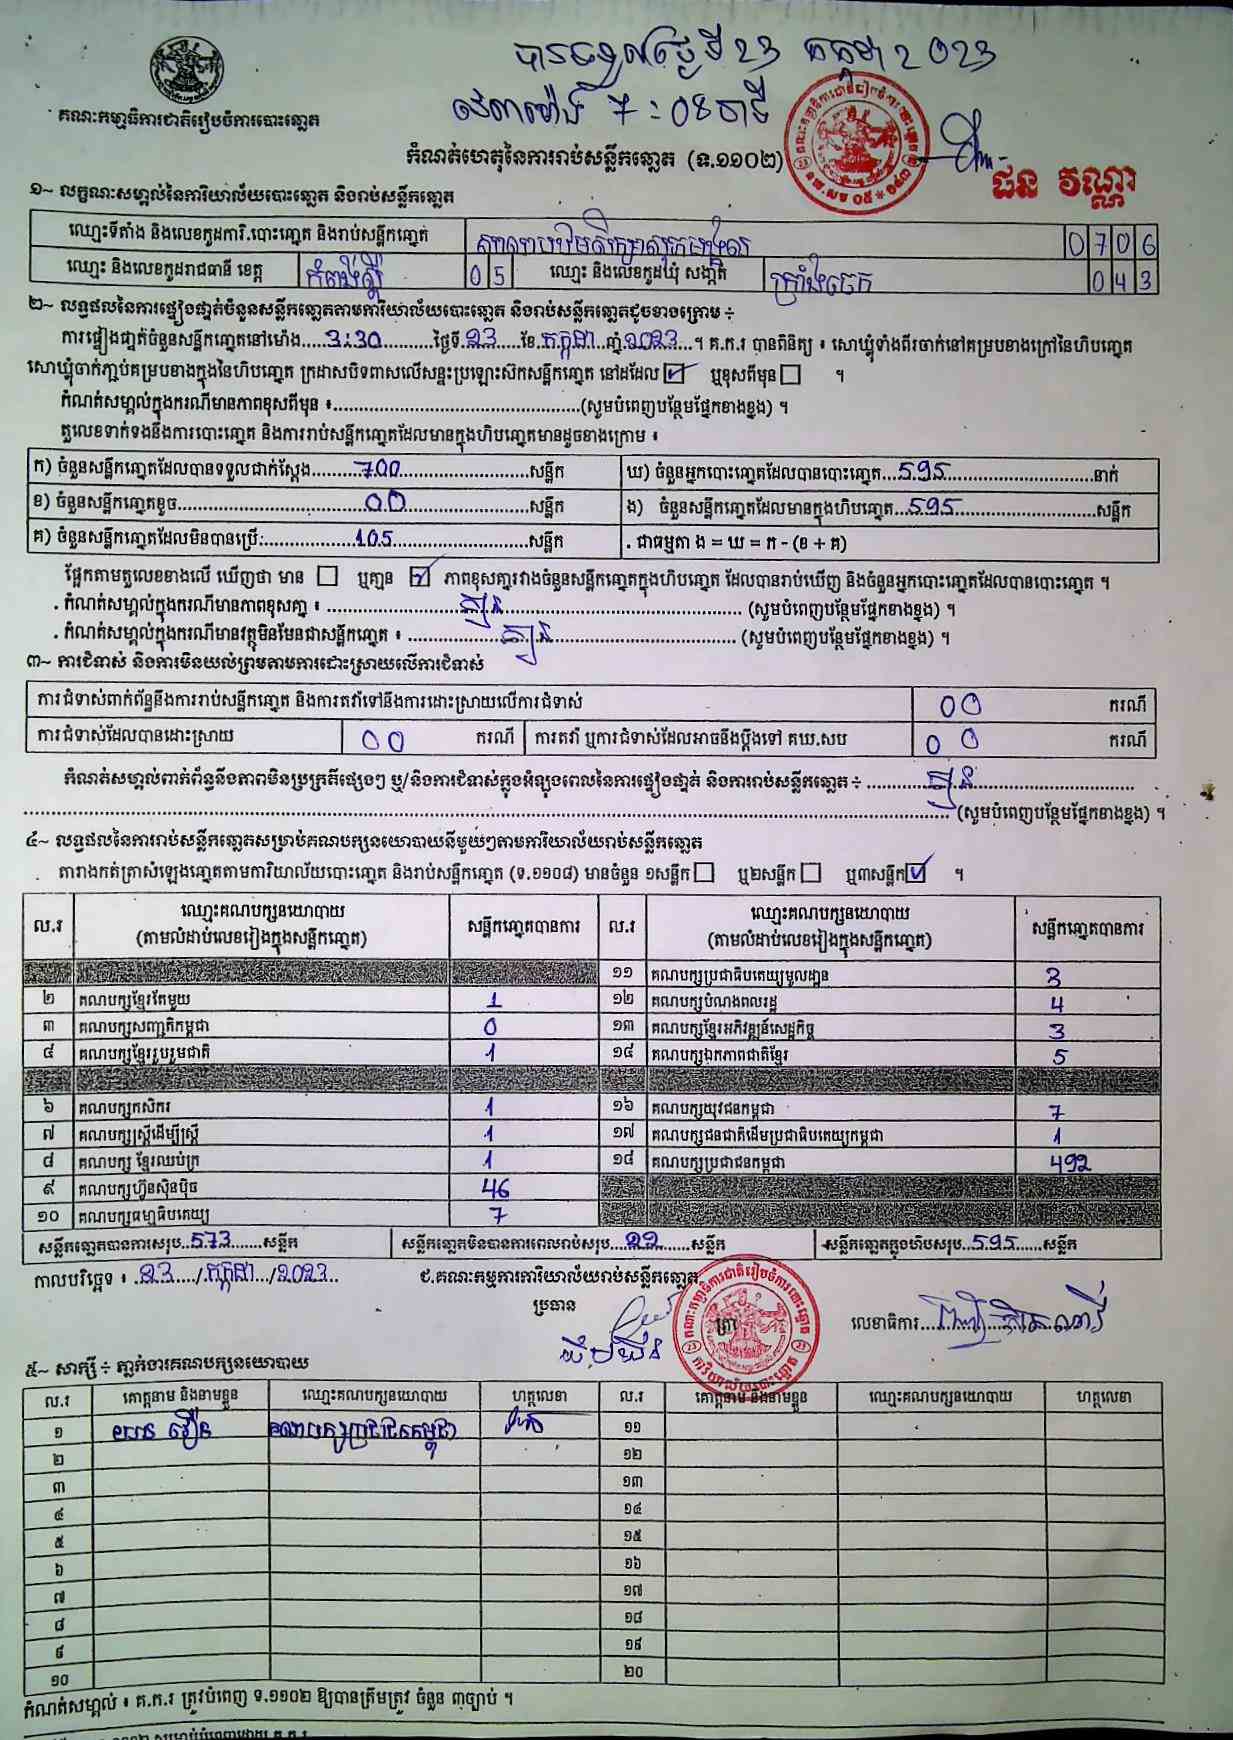 បានទទួលថ្ងៃទី 23 កក្កដា 2023
វេលាម៉ោង 7:08 នាទី
គណៈកម្មាធិការជាតិរៀបចំការបោះឆ្នោត
កំណត់ហេតុនៃការរាប់សន្លឹកឆ្នោត (ទ.១១០២)
ជន វណ្ណា
១~ លក្ខណៈសម្គាល់នៃការិយាល័យបោះឆ្នោត និងរាប់សន្លឹកឆ្នោត
ឈ្មោះទីតាំង និងលេខកូដការិ.បោះឆ្នោត និងរាប់សន្លឹកឆ្នោត សាលាបឋមសិក្សា 0706
ឈ្មោះ និងលេខកូដរាជធានី ខេត្ត កំពង់ស្ពឺ 05 ឈ្មោះ និងលេខកូដឃុំ សង្កាត់ ក្រាំងចេក 043
២~ លទ្ធផលនៃការផ្ទៀងផ្ទាត់ចំនួនសន្លឹកឆ្នោតតាមការិយាល័យបោះឆ្នោត និងរាប់សន្លឹកឆ្នោតដូចខាងក្រោម ÷
ការផ្ទៀងផ្ទាត់ចំនួនសន្លឹកឆ្នោតនៅម៉ោង 3:30 ថ្ងៃទី 23 ខែ កក្កដា ឆ្នាំ 2023 ។ គ.ក.រ បានពិនិត្យ ៖ សោឃ្លុំទាំងពីរចាក់នៅគម្របខាងក្រៅនៃហិបឆ្នោត
សោឃ្លុំចាក់ភ្ជាប់គម្របខាងក្នុងនៃហិបឆ្នោត ក្រដាសបិទពាសលើសន្ទះប្រឡោះស៊កសន្លឹកឆ្នោត នៅដដែល ☑ ឬខុសពីមុន ☐ ។
កំណត់សម្គាល់ក្នុងករណីមានភាពខុសពីមុន ៖ (សូមបំពេញបន្ថែមផ្នែកខាងខ្នង) ។
តួលេខទាក់ទងនឹងការបោះឆ្នោត និងការរាប់សន្លឹកឆ្នោតដែលមានក្នុងហិបឆ្នោតមានដូចខាងក្រោម ៖
ក) ចំនួនសន្លឹកឆ្នោតដែលបានទទួលជាក់ស្តែង 700 សន្លឹក ឃ) ចំនួនអ្នកបោះឆ្នោតដែលបានបោះឆ្នោត 595 នាក់
ខ) ចំនួនសន្លឹកឆ្នោតខូច 00 សន្លឹក ង) ចំនួនសន្លឹកឆ្នោតដែលមានក្នុងហិបឆ្នោត 595 សន្លឹក
គ) ចំនួនសន្លឹកឆ្នោតដែលមិនបានប្រើ: 105 សន្លឹក . ជាធម្មតា ង = ឃ = ក - (ខ + គ)
ផ្អែកតាមតួលេខខាងលើ ឃើញថា មាន ☐ ឬគ្មាន ☑ ភាពខុសគ្នារវាងចំនួនសន្លឹកឆ្នោតក្នុងហិបឆ្នោត ដែលបានរាប់ឃើញ និងចំនួនអ្នកបោះឆ្នោតដែលបានបោះឆ្នោត ។
. កំណត់សម្គាល់ក្នុងករណីមានភាពខុសគ្នា ៖ គ្មាន (សូមបំពេញបន្ថែមផ្នែកខាងខ្នង) ។
. កំណត់សម្គាល់ក្នុងករណីមានវត្ថុមិនមែនជាសន្លឹកឆ្នោត ៖ គ្មាន (សូមបំពេញបន្ថែមផ្នែកខាងខ្នង) ។
៣~ ការជំទាស់ និងការមិនយល់ព្រមតាមការដោះស្រាយលើការជំទាស់
ការជំទាស់ពាក់ព័ន្ធនឹងការរាប់សន្លឹកឆ្នោត និងការតវ៉ាទៅនឹងការដោះស្រាយលើការជំទាស់ 00 ករណី
ការជំទាស់ដែលបានដោះស្រាយ 00 ករណី ការតវ៉ា ឬការជំទាស់ដែលអាចនឹងប្តឹងទៅ គឃ.សប 00 ករណី
កំណត់សម្គាល់ពាក់ព័ន្ធនឹងភាពមិនប្រក្រតីផ្សេងៗ ឬ/និងការជំទាស់ក្នុងអំឡុងពេលនៃការផ្ទៀងផ្ទាត់ និងការរាប់សន្លឹកឆ្នោត ÷ គ្មាន
(សូមបំពេញបន្ថែមផ្នែកខាងខ្នង) ។
៤~ លទ្ធផលនៃការរាប់សន្លឹកឆ្នោតសម្រាប់គណបក្សនយោបាយនីមួយៗតាមការិយាល័យរាប់សន្លឹកឆ្នោត
តារាងកត់ត្រាសំឡេងឆ្នោតតាមការិយាល័យបោះឆ្នោត និងរាប់សន្លឹកឆ្នោត (ទ.១១០៨) មានចំនួន ១សន្លឹក ☐ ឬ២សន្លឹក ☐ ឬ៣សន្លឹក ☑ ។
ល.រ ឈ្មោះគណបក្សនយោបាយ (តាមលំដាប់លេខរៀងក្នុងសន្លឹកឆ្នោត) សន្លឹកឆ្នោតបានការ ល.រ ឈ្មោះគណបក្សនយោបាយ (តាមលំដាប់លេខរៀងក្នុងសន្លឹកឆ្នោត) សន្លឹកឆ្នោតបានការ
១១ គណបក្សប្រជាធិបតេយ្យមូលដ្ឋាន 3
២ គណបក្សខ្មែរតែមួយ 1 ១២ គណបក្សបំណងពលរដ្ឋ 4
៣ គណបក្សសញ្ជាតិកម្ពុជា 0 ១៣ គណបក្សខ្មែរអភិវឌ្ឍន៍សេដ្ឋកិច្ច 3
៤ គណបក្សខ្មែររួបរួមជាតិ 1 ១៤ គណបក្សឯកភាពជាតិខ្មែរ 5
៦ គណបក្សកសិករ 1 ១៦ គណបក្សយុវជនកម្ពុជា 7
៧ គណបក្សស្ត្រីដើម្បីស្ត្រី 1 ១៧ គណបក្សជនជាតិដើមប្រជាធិបតេយ្យកម្ពុជា 1
៨ គណបក្ស ខ្មែរឈប់ក្រ 1 ១៨ គណបក្សប្រជាជនកម្ពុជា 492
៩ គណបក្សហ៊្វុនស៊ិនប៉ិច 46
១០ គណបក្សធម្មាធិបតេយ្យ 7
សន្លឹកឆ្នោតបានការសរុប 573 សន្លឹក សន្លឹកឆ្នោតមិនបានការពេលរាប់សរុប 22 សន្លឹក សន្លឹកឆ្នោតក្នុងហិបសរុប 595 សន្លឹក
កាលបរិច្ឆេទ ៖ 23/កក្កដា/2023 ជ.គណៈកម្មការការិយាល័យរាប់សន្លឹកឆ្នោត
ប្រធាន
លេខាធិការ
៥~ សាក្សី ÷ ភ្នាក់ងារគណបក្សនយោបាយ
ល.រ គោត្តនាម និងនាមខ្លួន ឈ្មោះគណបក្សនយោបាយ ហត្ថលេខា ល.រ គោត្តនាម និងនាមខ្លួន ឈ្មោះគណបក្សនយោបាយ ហត្ថលេខា
១ គណបក្សប្រជាជនកម្ពុជា ១១
២ ១២
៣ ១៣
៤ ១៤
៥ ១៥
៦ ១៦
៧ ១៧
៨ ១៨
៩ ១៩
១០ ២០
កំណត់សម្គាល់ ៖ គ.ក.រ ត្រូវបំពេញ ទ.១១០២ ឱ្យបានត្រឹមត្រូវ ចំនួន ៣ច្បាប់ ។